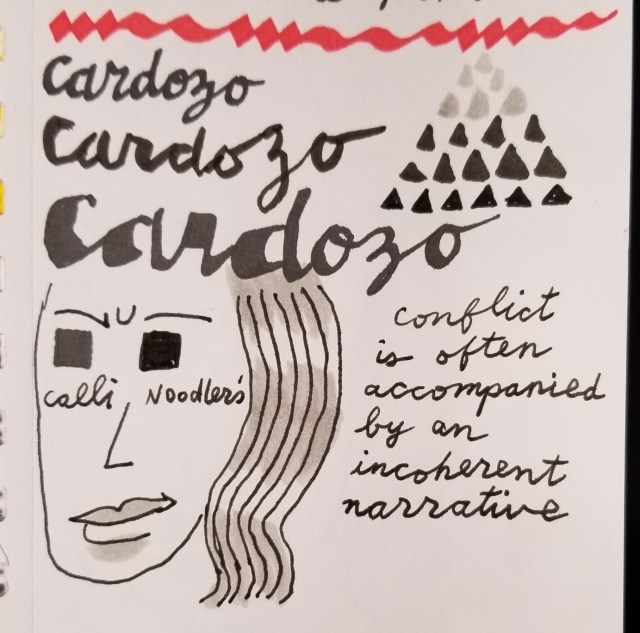 Cardozo
Cardozo
Cardozo
Calli Noodler's
conflict
is often
accompanied
by an
incoherent
narrative